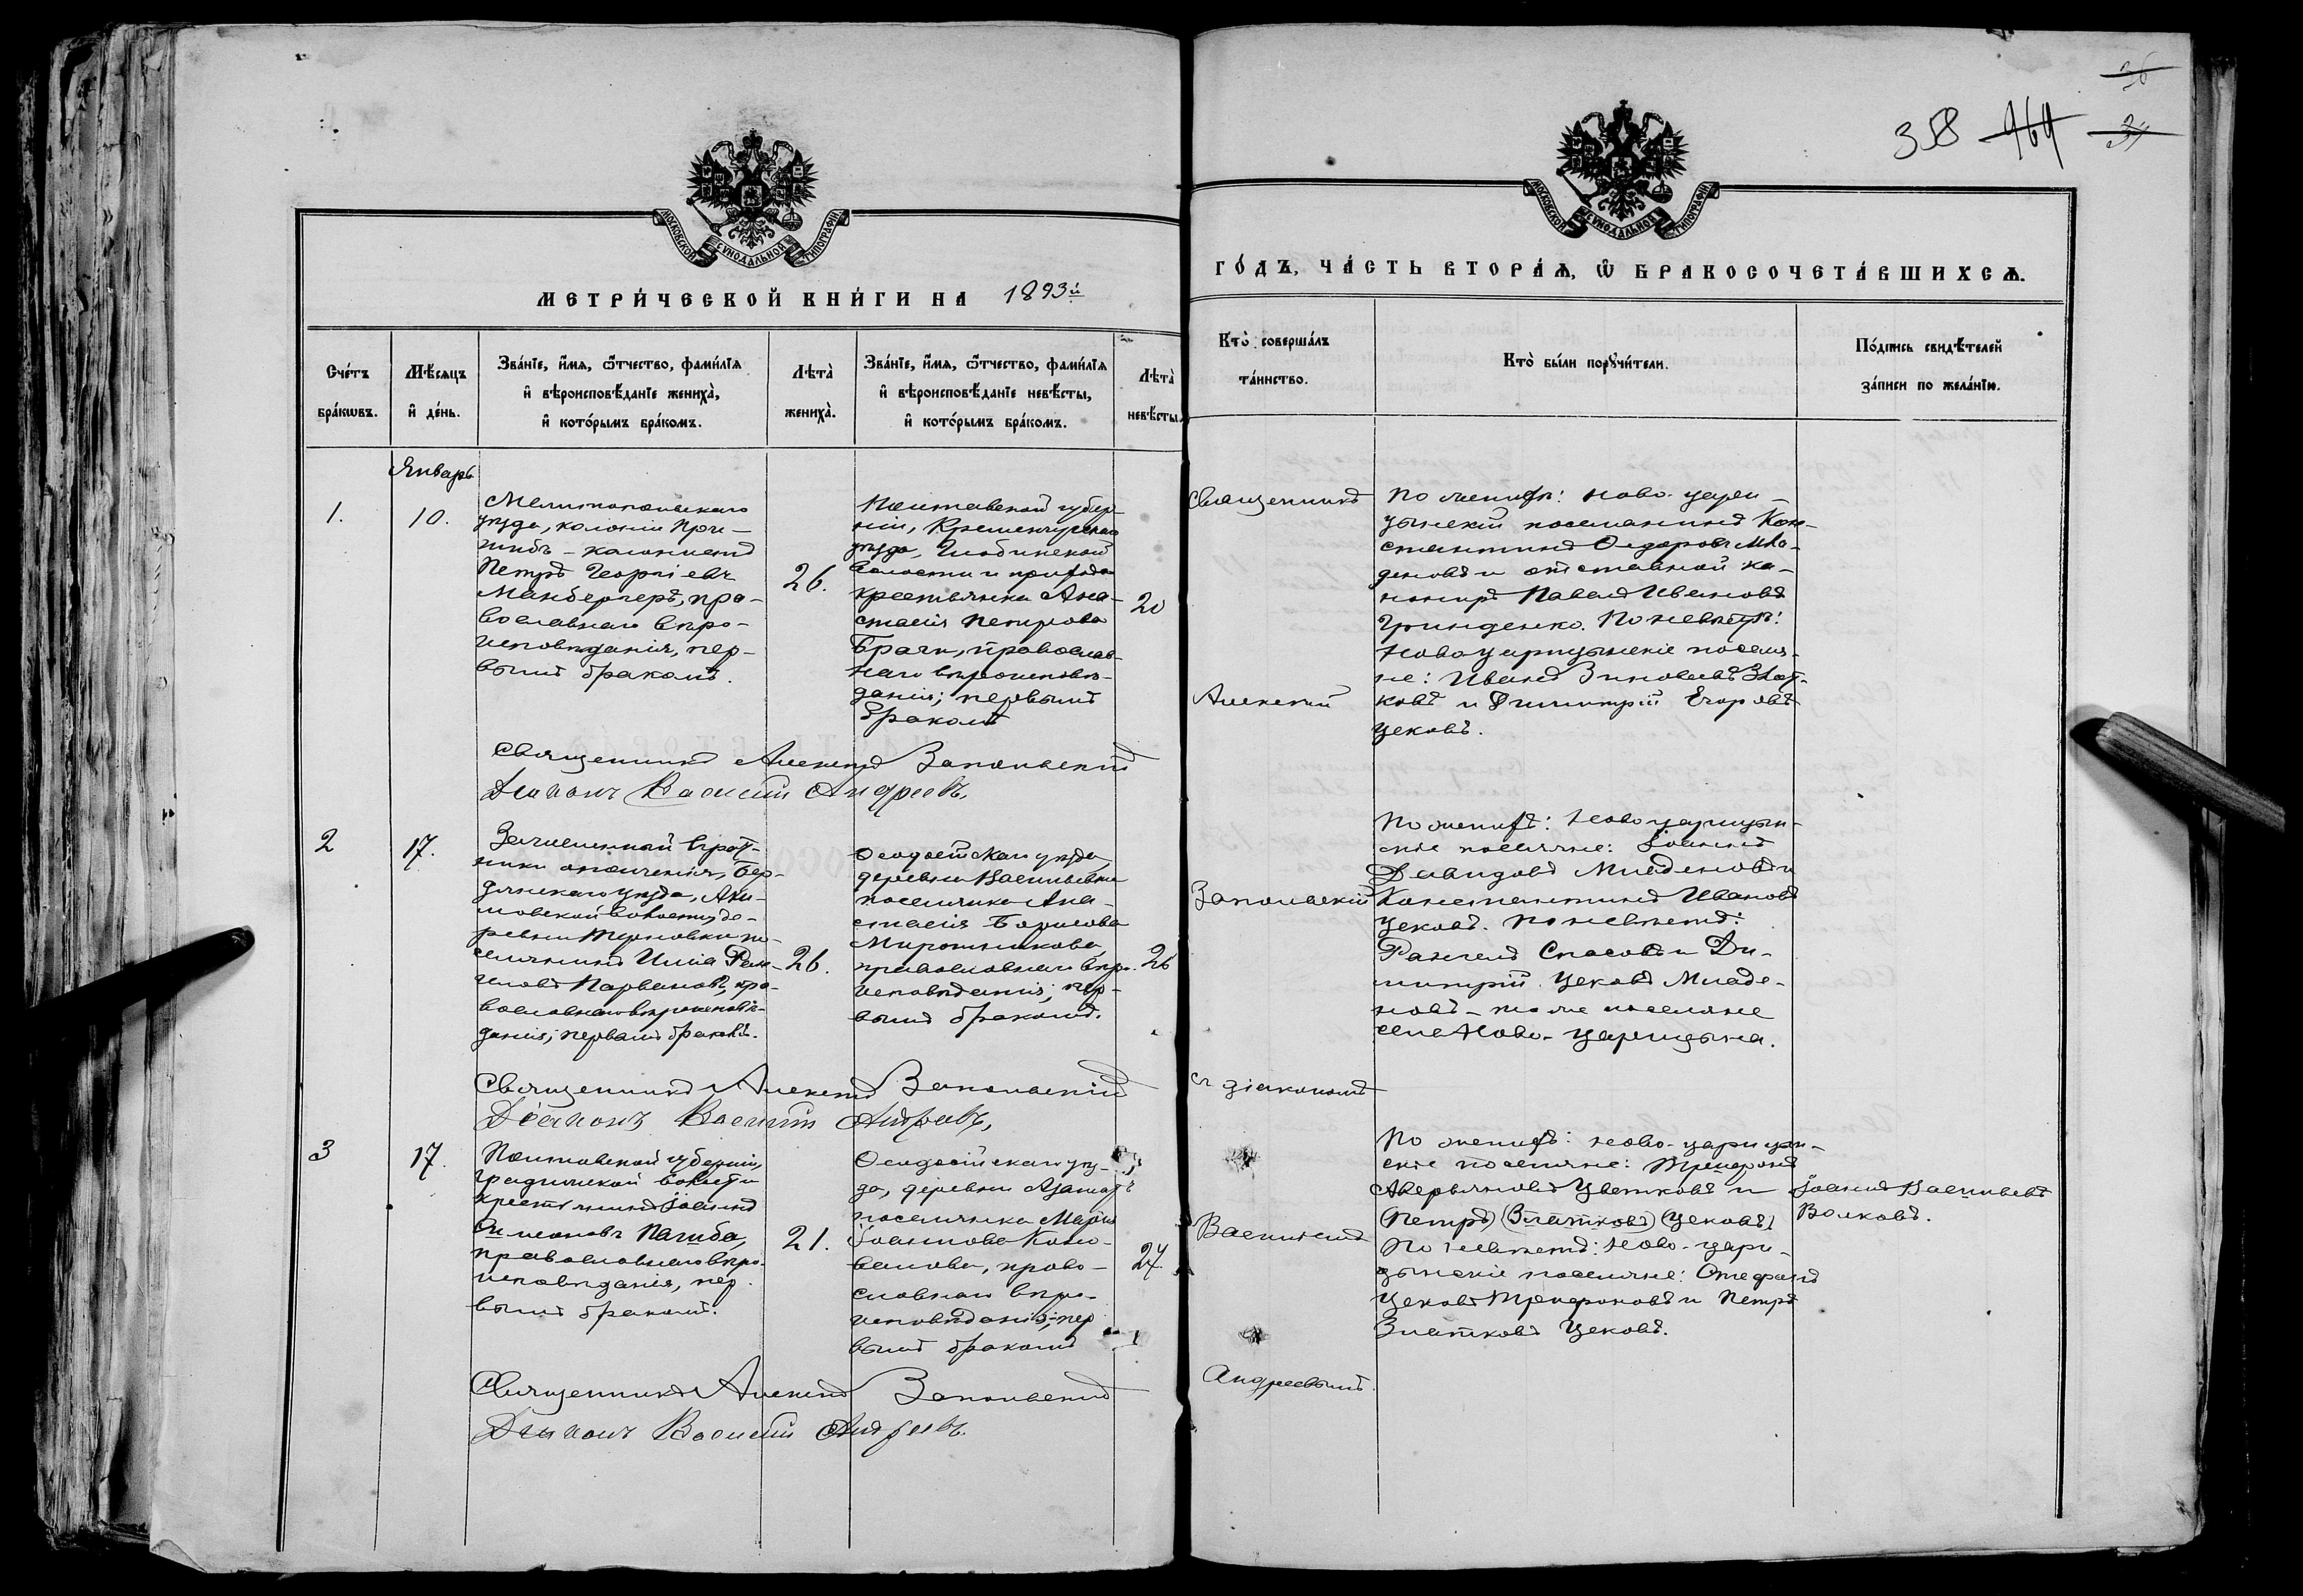 358 464 34
36
МОСКОВСКОЙ СѴНОДАЛЬНОЙ ТИПОГРАФІИ
МОСКОВСКОЙ СѴНОДАЛЬНОЙ ТИПОГРАФІИ
МЕТРИ́ЧЕСКОЙ КНИ́ГИ НА 1893й
ГО́ДЪ, ЧА́СТЬ ВТОРА́Ѧ, Ѿ БРАКОСОЧЕТА́ВШИХСѦ.
Сче́тъ бра́кѡвъ.
Мѣ́сѧцъ и҆ де́нь.
Зва́нїе, и҆́мѧ, ѻ҆́тчество, фами́лїѧ и҆ вѣроисповѣ́данїе жениха̀, и҆ кото́рымъ бра́комъ.
Лѣта̀ жениха̀.
Зва́нїе, и҆́мѧ, ѻ҆́тчество, фами́лїѧ и҆ вѣроисповѣ́данїе невѣ́сты, и҆ кото́рымъ бра́комъ.
Лѣта̀ невѣ́сты.
Кто̀ соверша́лъ та́инство.
Кто̀ бы́ли порꙋчи́тели.
По́дпись свидѣ́телей за́писи по жела́нїю.
Январь
1.
10.
Мелитопольскаго
уѣзда, колоніи При-
шибъ – колонистъ
Петръ Георгіевъ
Манбергеръ, пра-
вославнаго вѣро-
исповѣданія, пер-
вымъ бракомъ.
26.
Полтавской губер-
ніи, Кременчугскаго
уѣзда, Глобинской
волости и прихода
крестьянка Ана-
стасія Петрова
Брачи, православ-
наго вѣроисповѣ-
данія; первымъ
бракомъ
20
Священникъ
Алексій
По женихѣ: ново-цари-
цынскій поселянинъ Кон-
стантинъ Ѳедоровъ Мла-
деновъ и отставной ка-
нониръ Павелъ Ивановъ
Гринденко. По невѣстѣ:
Новоцарицынскіе поселя-
не: Иванъ Зиновьевъ Злат-
ковъ и Димитрій Егоровъ
Цековъ.
Священникъ Алексій Запольскій
Діаконъ Василій Андреевъ.
2
17.
Зачисленный въ рат-
ники ополченія, Бер-
дянскаго уѣзда, Аки-
мовской волости, де-
ревни Терновки по-
селянинъ Илія Ран-
геловъ Парвановъ, пра-
вославнаго вѣроисповѣ-
данія; первымъ бракомъ.
26.
Ѳеодосійскаго уѣзда,
деревни Васильевки
поселянка Ана-
стасія Борисова
Мирошникова,
православнаго вѣро-
исповѣданія; пер-
вымъ бракомъ.
26
Запольскій
По женихѣ: Новоцарицын-
скіе поселяне: Іоаннъ
Давидовъ Младеновъ и
Константинъ Ивановъ
Цековъ. По невѣстѣ:
Рангелъ Спасовъ и Ди-
митрій Цековъ Младе-
новъ – тоже поселяне
села Ново-Царицына.
Священникъ Алексій Запольскій
Діаконъ Василій Андреевъ.
съ діакономъ
3
17.
Полтавской губерніи,
Градижской волости
крестьянинъ Іоаннъ
Симеоновъ Пагиба,
православнаго вѣро-
исповѣданія, пер-
вымъ бракомъ.
21.
Ѳеодосійскаго уѣз-
да, деревни Азаматъ
поселянка Марія
Іоаннова Коно-
валова, право-
славнаго вѣро-
исповѣданія; пер-
вымъ бракомъ
24
Василіемъ
Андреевымъ.
По женихѣ: ново-царицын-
скіе поселяне: Трифонъ
Аверьяновъ Цветковъ и
(Петръ) (Златковъ) (Цековъ)
По невѣстѣ: Ново-цари-
цынскіе поселяне: Стефанъ
Цековъ Трифоновъ и Петръ
Златковъ Цековъ.
Іоаннъ Васильевъ
Волковъ.
Священникъ Алексій Запольскій
Діаконъ Василій Андреевъ.